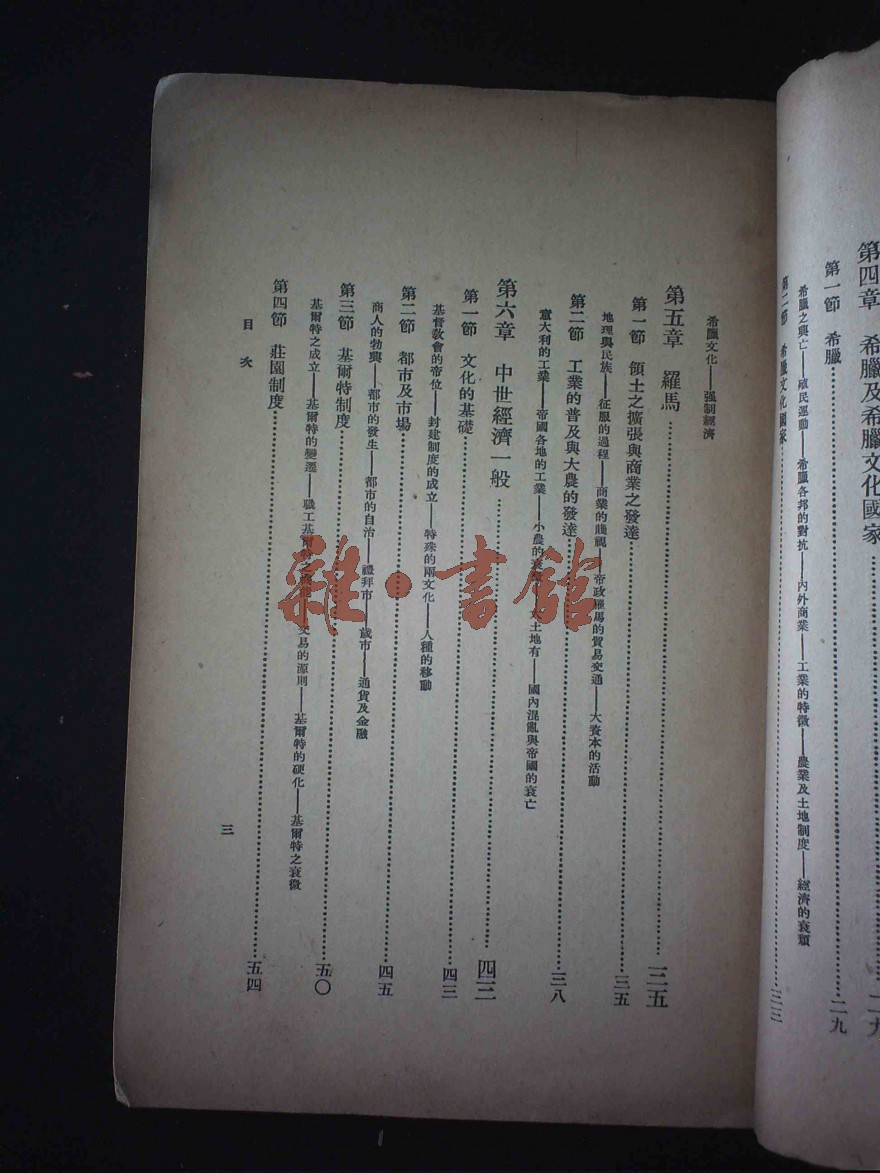 第四章 希臘及希臘文化國家……二九
第一節 希臘……二九
希臘之興亡——殖民運動——希臘各邦的對抗——內外商業——工業的特徵——農業及土地制度——經濟的衰頹
第二節 希臘文化國家……三三
希臘文化——强制經濟
第五章 羅馬……三五
第一節 領土之擴張與商業之發達……三五
地理與民族——征服的過程——商業的賤視——帝政羅馬的貿易交通——大資本的活動
第二節 工業的普及與大農的發達……三八
意大利的工業——帝國各地的工業——小農的衰 土地有——國內混亂與帝國的衰亡
第六章 中世經濟一般……四三
第一節 文化的基礎……四三
基督敎會的帝位——封建制度的成立——特殊的兩文化——人種的移動
第二節 都市及市場……四五
商人的勃興——都市的發生——都市的自治——禮拜市——歲市——通貨及金融
第三節 基爾特制度……五〇
基爾特之成立——基爾特的變遷——職工基爾特之 交易的源則——基爾特的硬化——基爾特之衰微
第四節 莊園制度……五四
目次
三
雜·書館